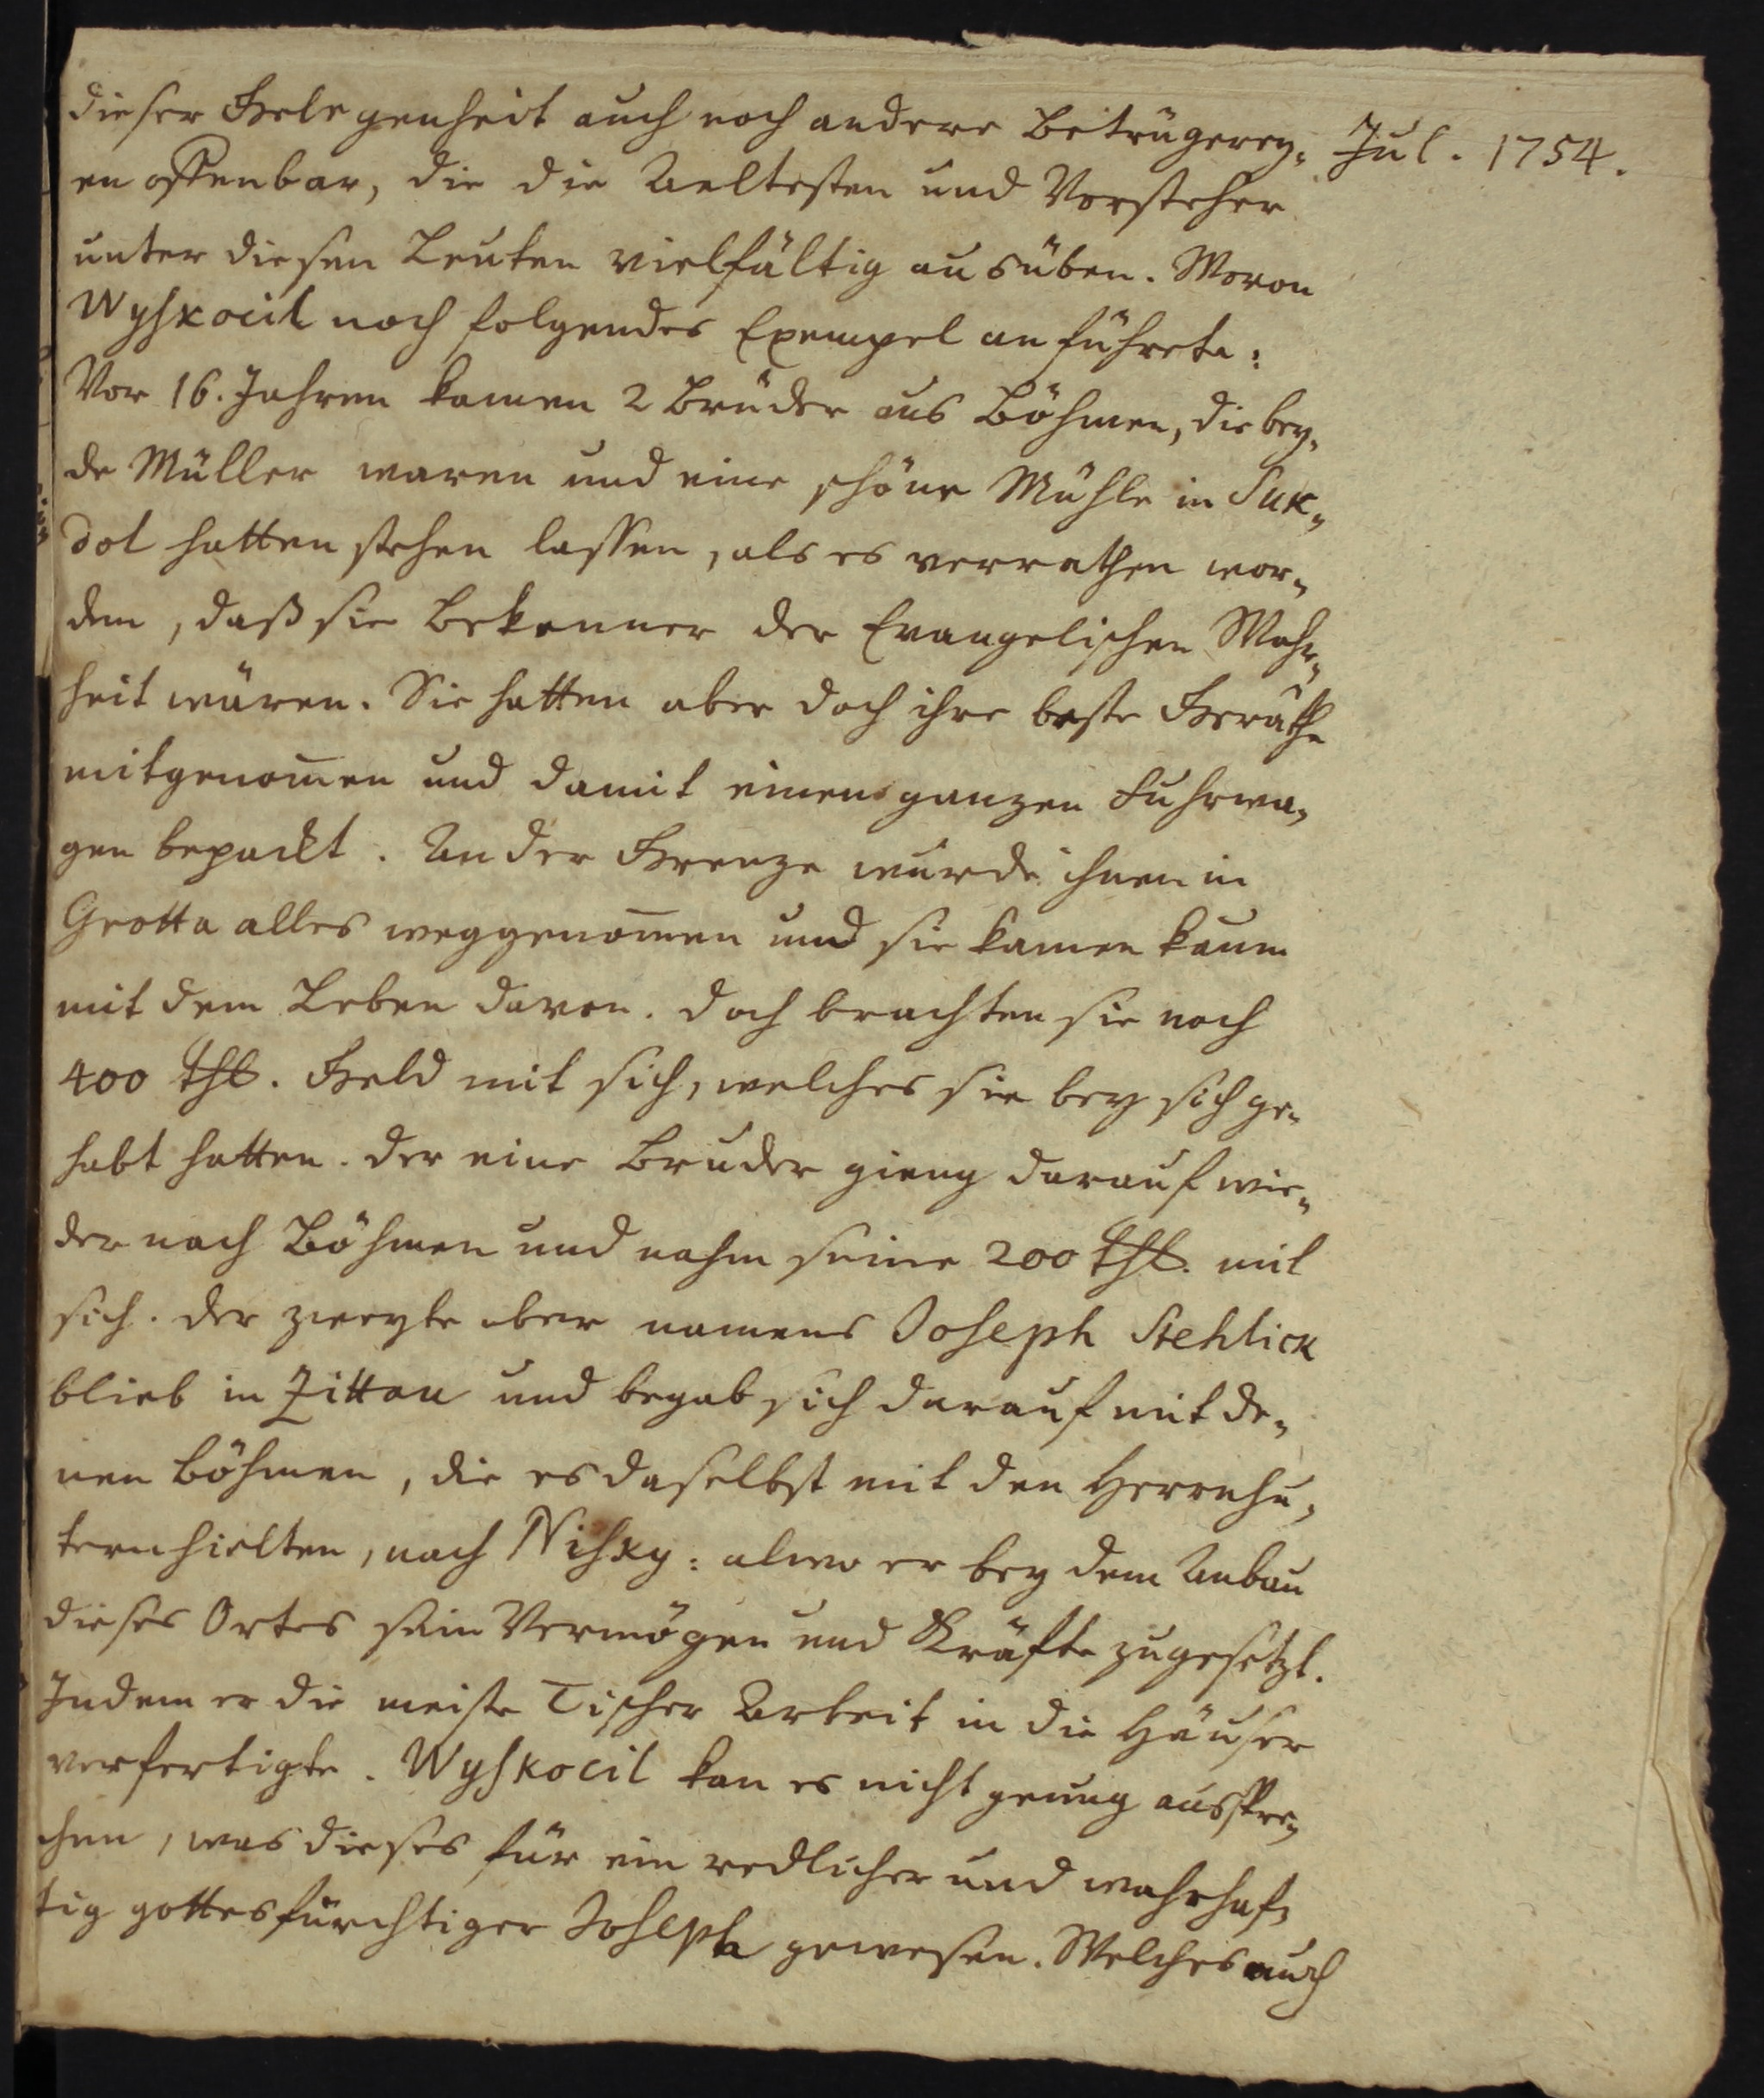 dieser Gelegenheit auch noch andere Betrügerey-
Jul. 1754.
en offenbar, die die Aeltesten und Vorsteher
unter diesen Leuten vielfältig ausüben. Wovon
Wyskocil noch folgendes Exempel anführete:
Vor 16. Jahren kamen 2 Brüder aus Böhmen, die bey-
de Müller waren und eine schöne Mühle in Suk-
dol hatten stehen lassen, als es verrathen wor-
den, daß sie Bekenner der Evangelischen Wahr-
heit wären. Sie hatten aber doch ihre beste Geräthe
mitgenom̄en und damit einen ganzen Fuhrwa-
gen bepackt. An der Grenze wurde ihnen in
Grotta alles weggenom̄en und sie kamen kaum
mit dem Leben davon. Doch brachten sie noch
400 thl. Geld mit sich, welches sie bey sich ge-
habt hatten. Der eine Bruder gieng darauf wie-
der nach Böhmen und nahm seine 200 thl. mit
sich. Der zweyte aber namens Joseph Stehlick
blieb in Zittau und begab sich darauf mit de-
nen Böhmen, die es daselbst mit den Herrnhu-
tern hielten, nach Nisky: alwo er bey dem Anbau
dieses Ortes sein Vermögen und Kräfte zugesetzt.
Indem er die meiste Tischer Arbeit in die Häuser
verfertigte. Wyskocil kan es nicht genug ausspre-
chen, was dieses für ein redlicher und wahrhaf-
tig gottesfürchtiger Joseph gewesen. Welches auch